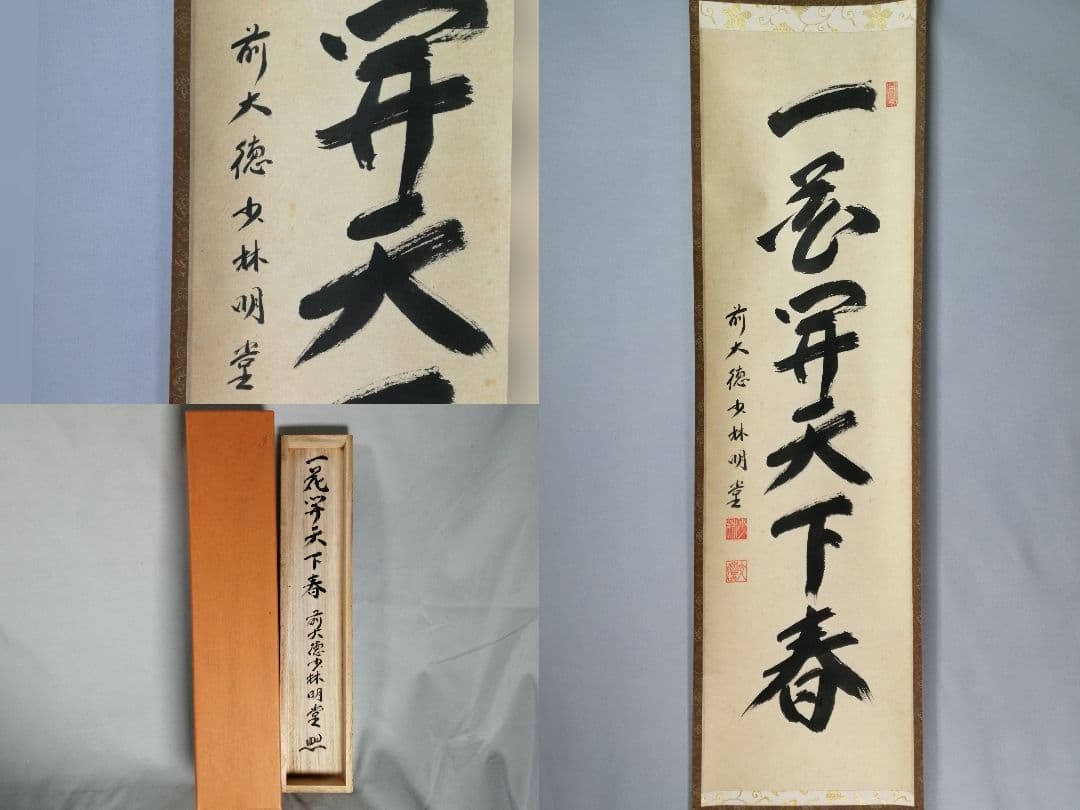 前大徳少林明堂
開天
一花開天下春
前大徳少林明堂
一花開天下春
前大徳少林明堂